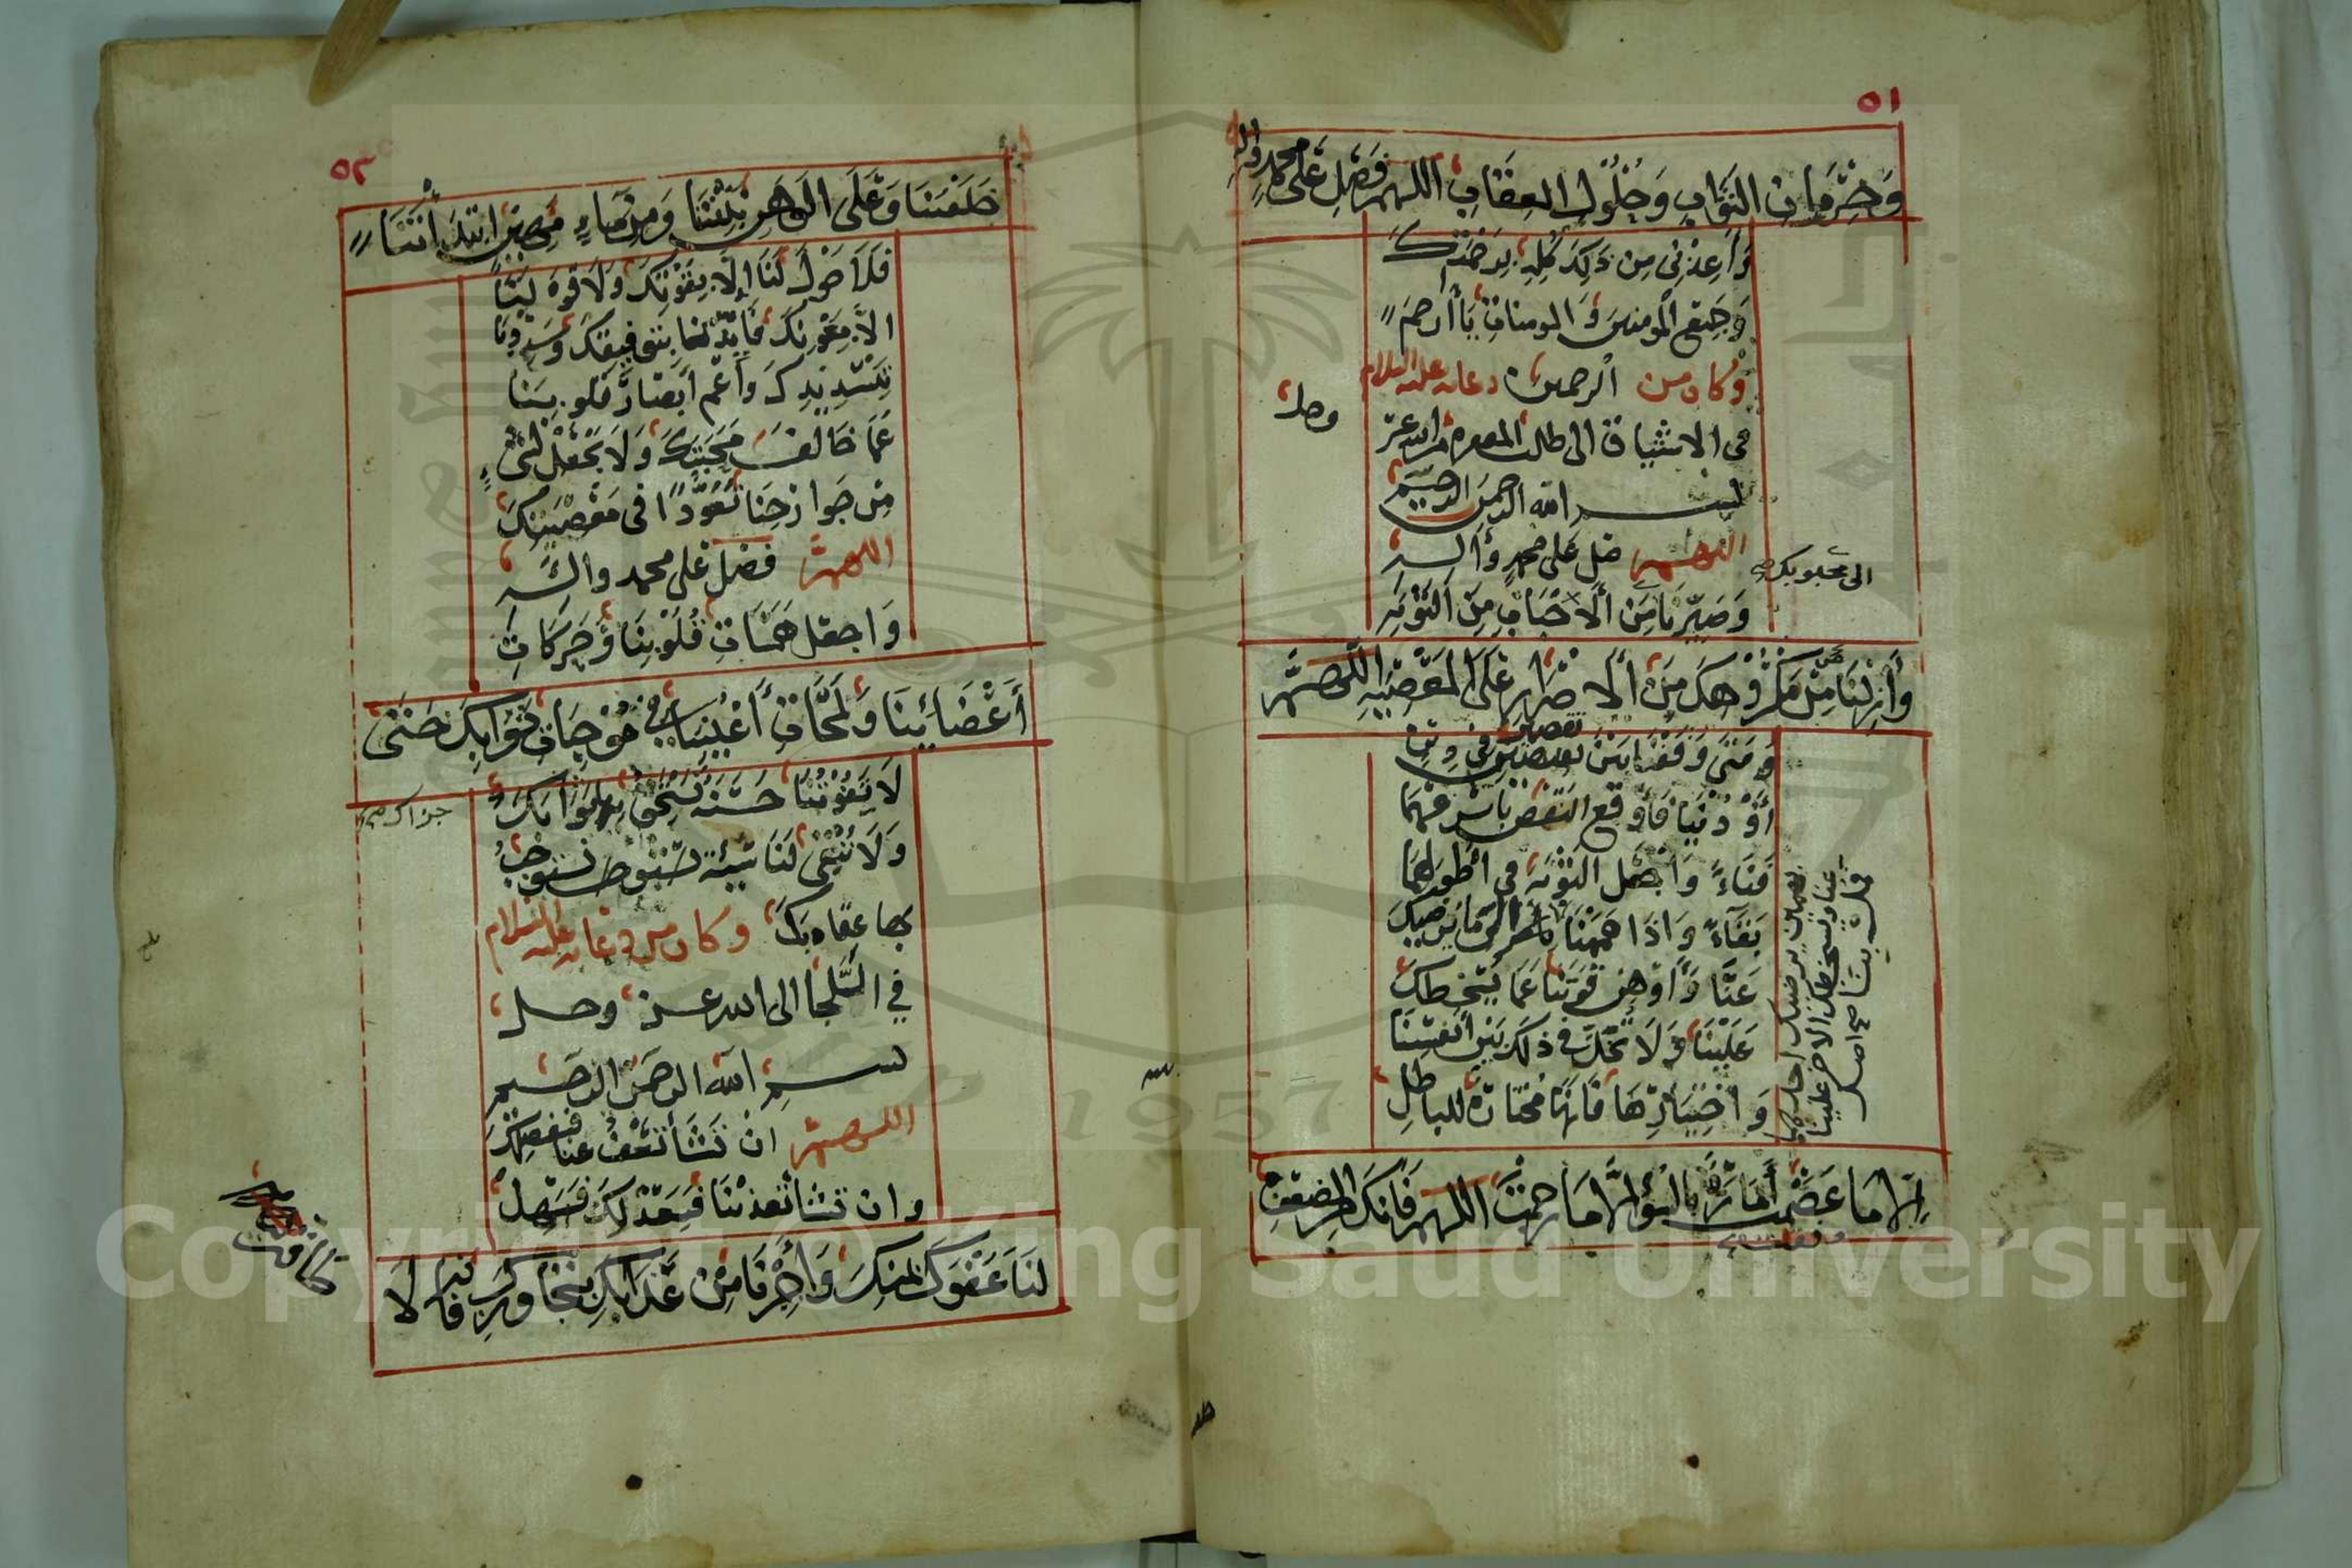 ٥١
وَحِرْمَانِ الثَوَابِ وَحُلُولِ العِقَابِ اللهم فَصَلِ عَلَى محمدٍ واله
وَاَعِذْنِى مِن ذَلِكَ كُلِهِ بِرَحْمَتِكَ
وَجَمِيْعِ الْمومنين وَالمومنات يَا أَرحَمَ
الرحمين وكان من دعائه عليه السلام
فى الاشتياق الى طلب المغفرة من الله عز
وجل
بسم الله الرحمن الرحيم
اللهم صل على محمدٍ وَاله
وَصَيّرنَا مِنَ الْاَحْبَابِ مِنَ التَوْبَةِ
الى محبوبك من
وَأَزِلْنَا مِنْ مَكْرُوْهِكَ مِنَ الْاِصْرَارِ عَلَى الْمَعْصِيَةِ اللَّهم
وَمَتَى وَقَفْنَا بَيْنَ نَقصين فِى دِيْنٍ
أَوْ دُنْيَا فَأَوْقِعِ النَقْصَ بِأَسْرَعِهِمَا
فَنَاءً وَاجْعَل التَوْبَةَ فى اَطْوَلِهِمَا
بَقَآءً وَاِذَا هَمَمْنَا
عَنَّا وَاَوْهِن قُوَّتَنَا عَمَا يُسْخِطُكَ
عَلَيْنَا وَلَا تُخَلِّ فى ذلك بَيْنَ أَنْفُسِنَا
وَاِخْتِيَارِهَا فَاِنَّهَا مُخْتَارَةٌ لِلبَاطِلِ
بهمين يرضيك احدهما
عنا ويسخطك الاخر علينا
فمل بنا صح اصل
اِلَّا مَا وَفَقْتَ أَمَّارَةٌ بِالسُؤِ اِلَّا مَا رَحِمْتَ اللهم فَاِنَكَ مِنَ الضعفِ
٥٢
خَلَقْتَنَا وَعَلَى الوَهَنِ بَنَيْتَنَا وَمِنْ مَاءٍ مَهِيْنٍ ابْتَدَأْتَنَا
فَلَا حَوْلَ لَنَا اِلَّا بِقُوَّتِكَ وَلَا قُوةَ لَنَا
اِلاَّ بِعَوْنِكَ فَأَيِّدْنَا بِتَوْفِيقِكَ وَسَدِّدْنَا
بِتَسْدِيْدِكَ وَأَعْمِ أَبْصَارَ قُلُوبِنَا
عَمَّا خَالَفَ مَحَبَتَكَ وَلَا تَجْعَلْ لِشَىْءٍ
مِن جَوَارِحِنَا نُفُوْذًا فى مَعْصِيَتِكَ
اللهم فصل على محمد واله
وَاجعَل هَمَسَاتِ قُلُوْبِنَا وَحَرَكَاتِ
أَعْضَائِنَا وَلَمَحَاتِ أَعْيُنِنَا فِى مُوْجِبَاتِ ثَوَابِكَ حَتَّى
لَا تَفُوْتَنَا حَسَنَة نَسْتَحِقُ بِهَا ثَوَابَكَ
جزاك صح
وَلَا تَبْقَى لَنَا سَيِئَة نَسْتَوجِبُ
بِهَا عِقَابَكَ وكان من دعائه عليه السلام
فِي اللَّجَا الى الله عز وجل
بسم الله الرحمن الرحيم
اللهم اِن تَشَأْ تَعْفُ عنا فَبِفَضْلِكَ
وان تَشَأْ تُعَذِّبْنَا فَبِعَدْلِكَ فَسَهِّلْ
لَنَا عَفْوَكَ بِمَنِّكَ وَأَجِرْنَا مِنْ عَذَابِكَ بِتَجَاوُزِكَ فَاِنَّه لَا
طاقة